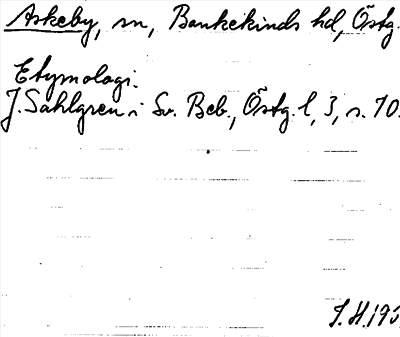 Askeby, sn, Bankekinds hd, Östg.
Etymologi.
J. Sahlgren i Sv. Beb., Östg. l, 3, s. 70.
J. H. 193